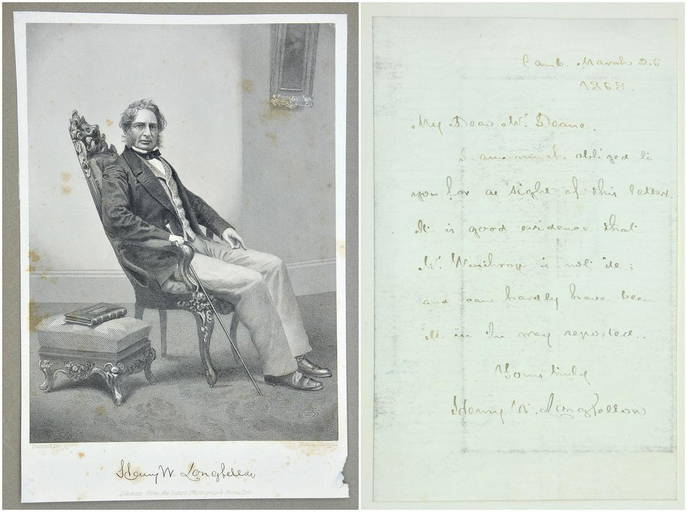 Henry W. Longfellow
Camb. March 26
My Dear Mr. Deane,
I am much obliged to
you for a sight of this letter.
It is good evidence that
Mr. Winthrop is not ;
and can hardly have been
in the way reported.
Yours truly
Henry W. Longfellow